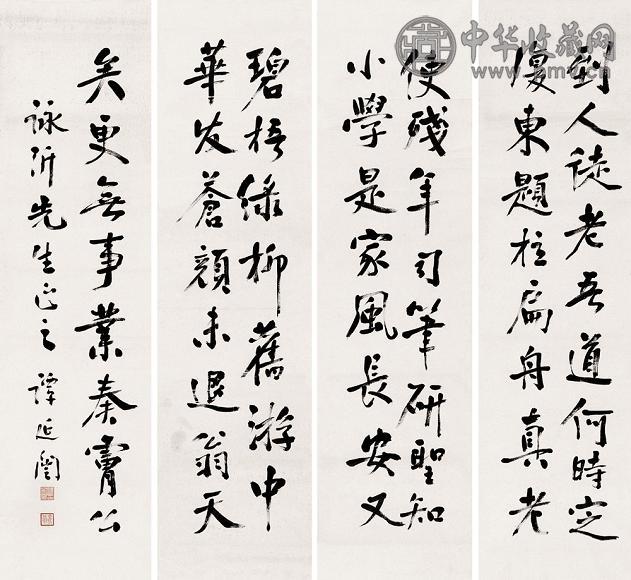 到人徒老吾道何時定
復東題柱扁舟真老
使殘年司筆研聖知
小學是家風長安又
碧梧綠柳舊游中
華髮蒼顏未退翁天
矣更無事業奏膚公
詠沂先生正之 譚延闓
中华收藏网